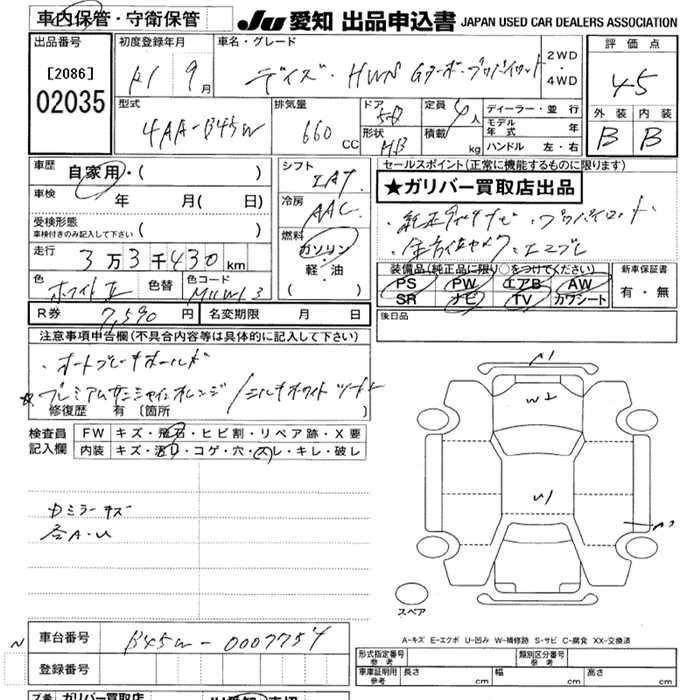 車内保管・守衛保管 JU 愛知 出品申込書 JAPAN USED CAR DEALERS ASSOCIATION
出品番号 [2086] 02035
初度登録年月 R1 9月
車名・グレード デイズ・HWS Gターボ・プロパイロット
2WD・4WD
評価点 4.5
型式 4AA-B45W
排気量 660 CC
ドア 5D
形状 HB
定員 4人
積載 kg
ディーラー・並行
モデル年式
ハンドル 左・右
外装 内装
B B
車歴 自家用・( )
車検 年 月( 日)
受検形態 車検付きのみ記入して下さい ( )
走行 3万3千430km
色 ホワイトⅡ 色替 色コード
R券 7,590円 名変期限 月 日
シフト IAT
冷房 AAC
燃料 ガソリン・軽・油 ( )
セールスポイント(正常に機能するものに限ります)
★ガリバー買取店出品
・純正ナビ・プロパイロット
・全方位カメラ・エマブレ
装備品(純正品に限り○をつけてください)
PS PW エアB AW
SR ナビ TV カワシート
新車保証書 有・無
後日品
注意事項申告欄(不具合内容等は具体的に記入して下さい)
・オートブレーキホールド
プレミアムサンシャインオレンジ/ミルキホワイトツートン
修復歴 有 [箇所 ]
検査員記入欄
FW キズ・飛石・ヒビ割・リペア跡・X要
内装 キズ・汚・コゲ・穴・スレ・キレ・破レ
Dミラーキズ
各A・U
A1
W2
U1
A2
スペア
A-キズ E-エクボ U-凹み W-補修跡 S-サビ C-腐食 XX-交換済
車台番号 B45W-0007757
登録番号
型式指定番号 参考 類別区分番号 参考
車庫証明用参考 長さ cm 幅 cm 高さ cm
ガリバー買取店 JU愛知